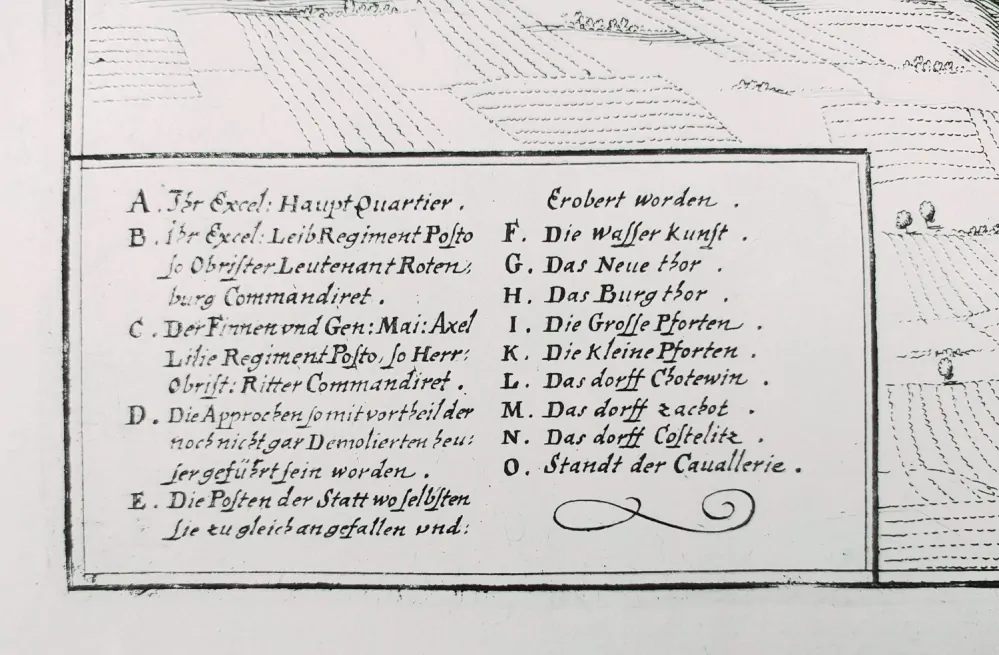 A. Ihr Excel: Haupt Quartier.
B. Ihr Excel: Leib Regiment Poſto
ſo Obriſter Leutenant Roten:
burg Commandiret.
C. Der Finnen vnd Gen: Mai: Axel
Lilie Regiment Poſto, ſo Herr:
Obriſt: Ritter Commandiret.
D. Die Approchen ſo mit vortheil der
noch nicht gar Demolierten heu:
ſer geführt ſein worden.
E. Die Poſten der Statt wo ſelbſten
ſie zu gleich angefallen vnd:
Erobert worden.
F. Die Waſſer kunſt.
G. Das Neue thor.
H. Das Burg thor.
I. Die Groſſe Pforten.
K. Die kleine Pforten.
L. Das dorff Chotewin.
M. Das dorff zachot.
N. Das dorff Coſtelitz.
O. Standt der Cauallerie.